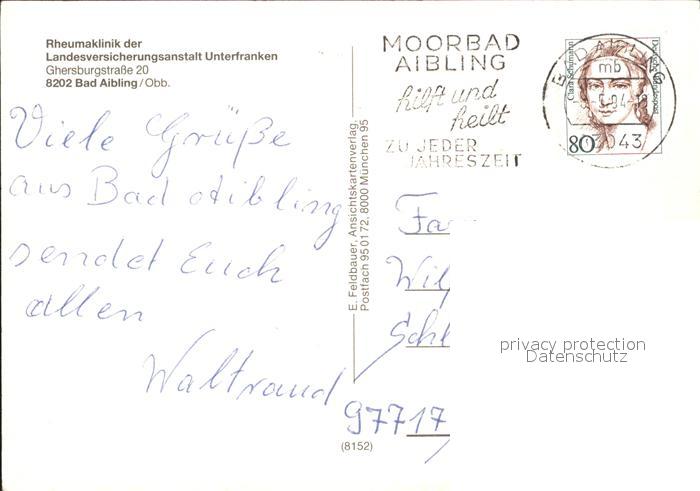 Rheumaklinik der
Landesversicherungsanstalt Unterfranken
Ghersburgstraße 20
8202 Bad Aibling / Obb.
Viele Grüße
aus Bad Aibling
sendet Euch
allen
Waltraud
E. Feldbauer, Ansichtskartenverlag,
Postfach 95 01 72, 8000 München 95
(8152)
MOORBAD
AIBLING
hilft und
heilt
ZU JEDER
JAHRESZEIT
BAD AIBLING
mb
83043
Clara Schumann
Deutsche Bundespost
80
Fa
Wil
Schl
97717
privacy protection
Datenschutz